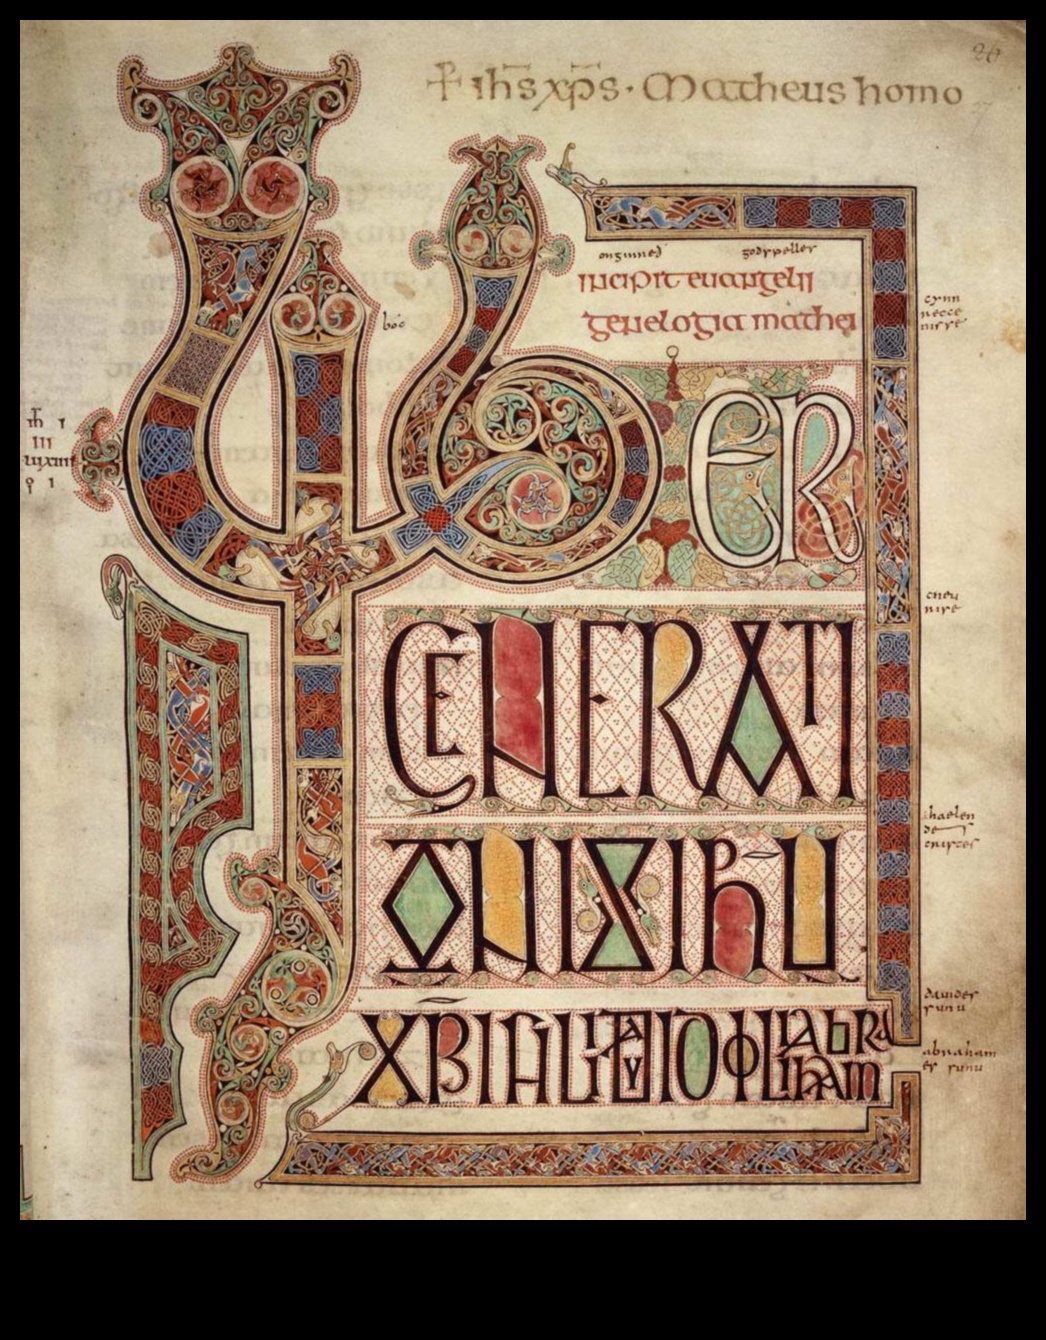 + ihs xps · Matheus homo
onginneð godspelles
incipit euangelii
genelogia mathei
boc
LIBER
GENERATI
ONIS IHU
XPI FILII DAVID FILII ABRAHAM
cynn
recce
nisse
cneu
nise
haelen
de
cristes
dauides
sunu
abraham
es sunu